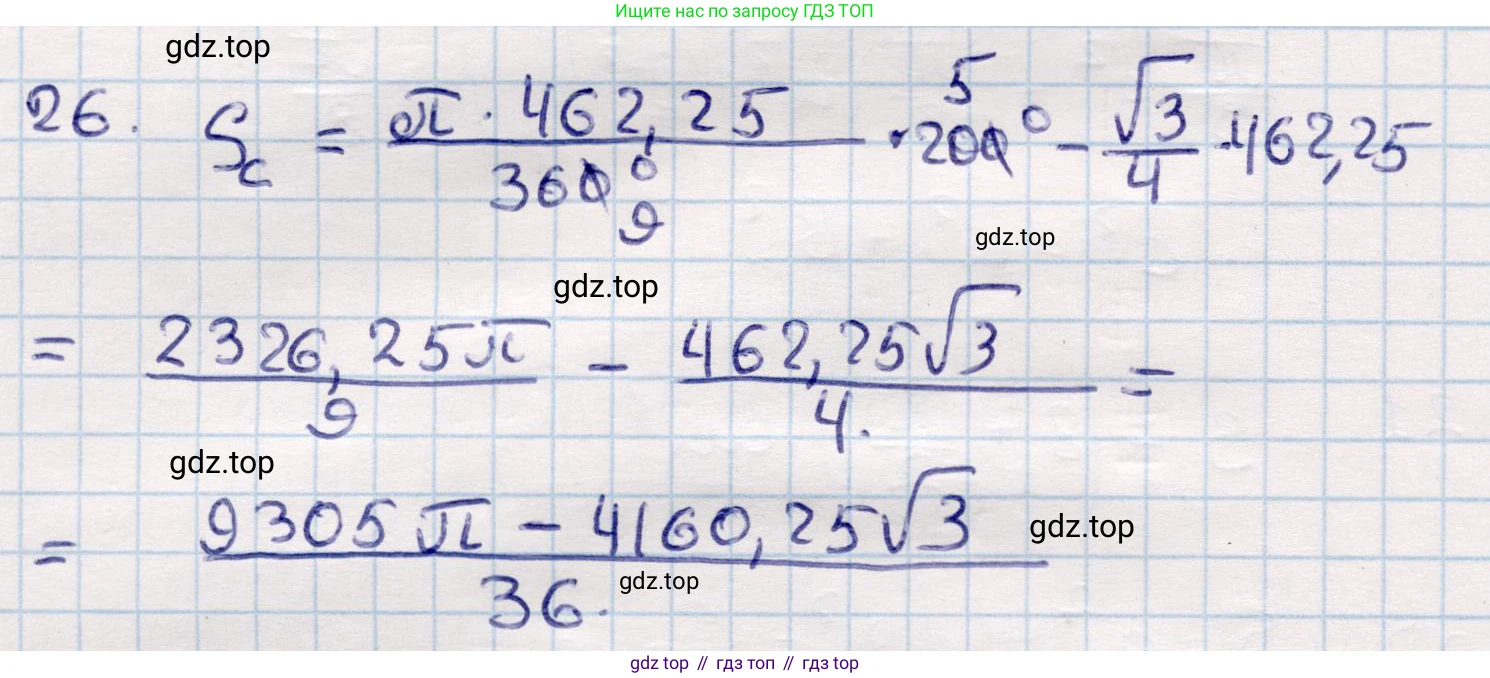 Ищите нас по запросу ГДЗ ТОП
gdz.top
26. Sc = π · 462,25 / 360° 9 · 5 200° - √3/4 · 462,25
gdz.top
gdz.top
= 2326,25π / 9 - 462,25√3 / 4. =
gdz.top
= 9305π - 4160,25√3 / 36.
gdz.top
gdz.top
gdz top // гдз топ // гдз top